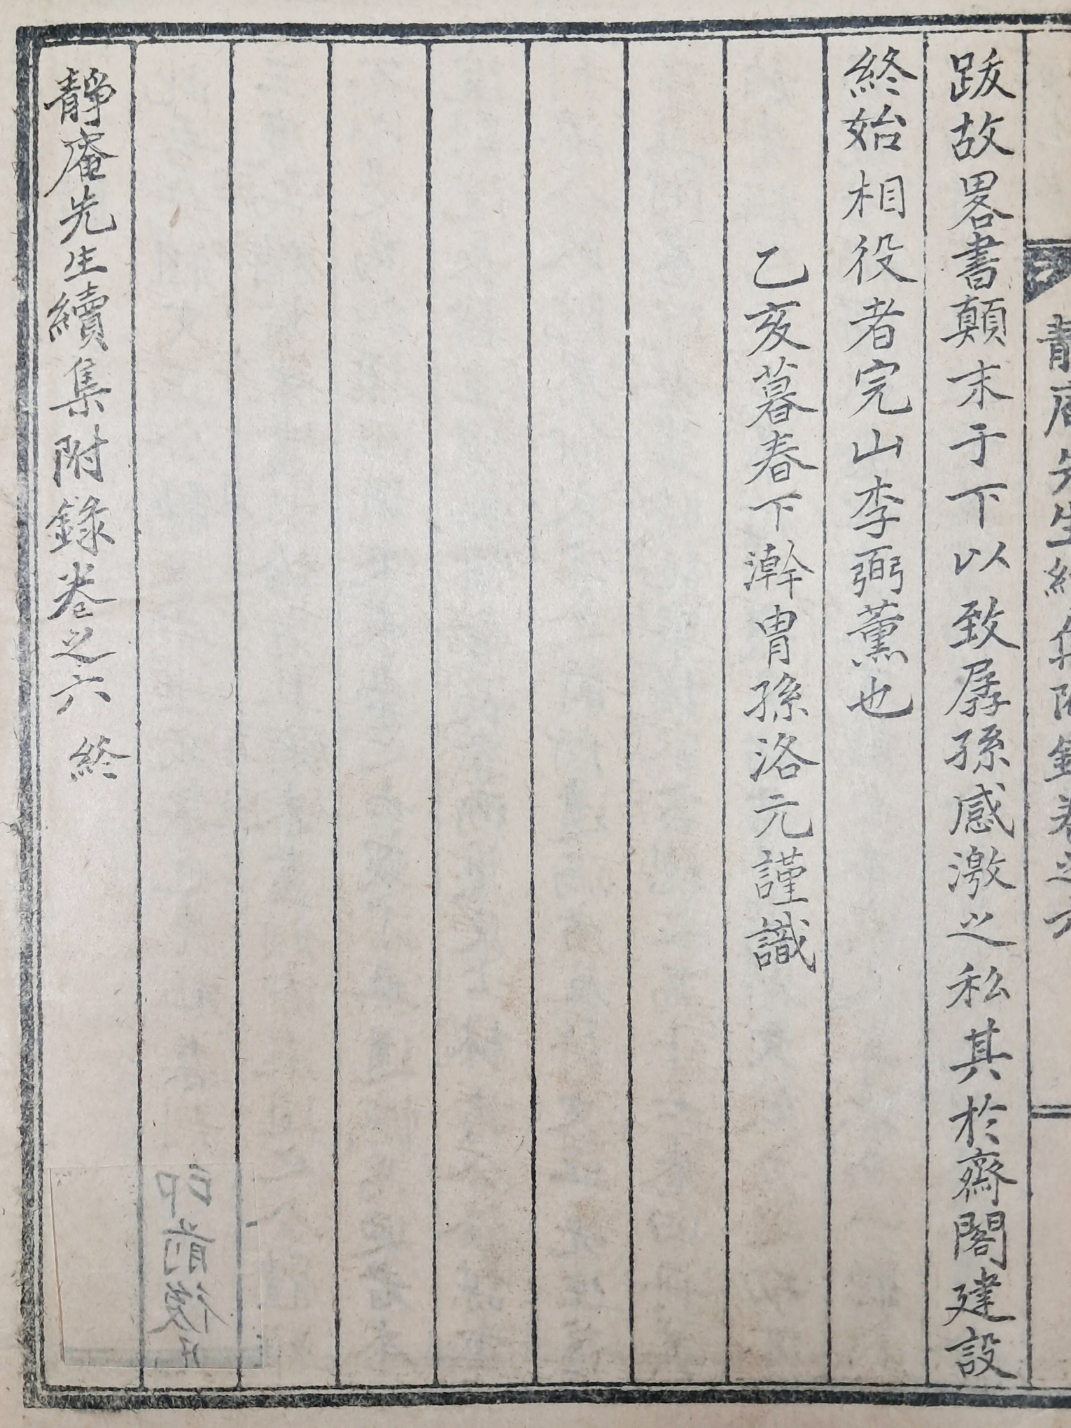 靜庵先生續集附錄卷之六
跋故畧書顛末于下以致孱孫感激之私其於齋閣建設
終始相役者完山李弼薰也
乙亥暮春下澣胄孫洛元謹識
靜庵先生續集附錄卷之六 終
印前後